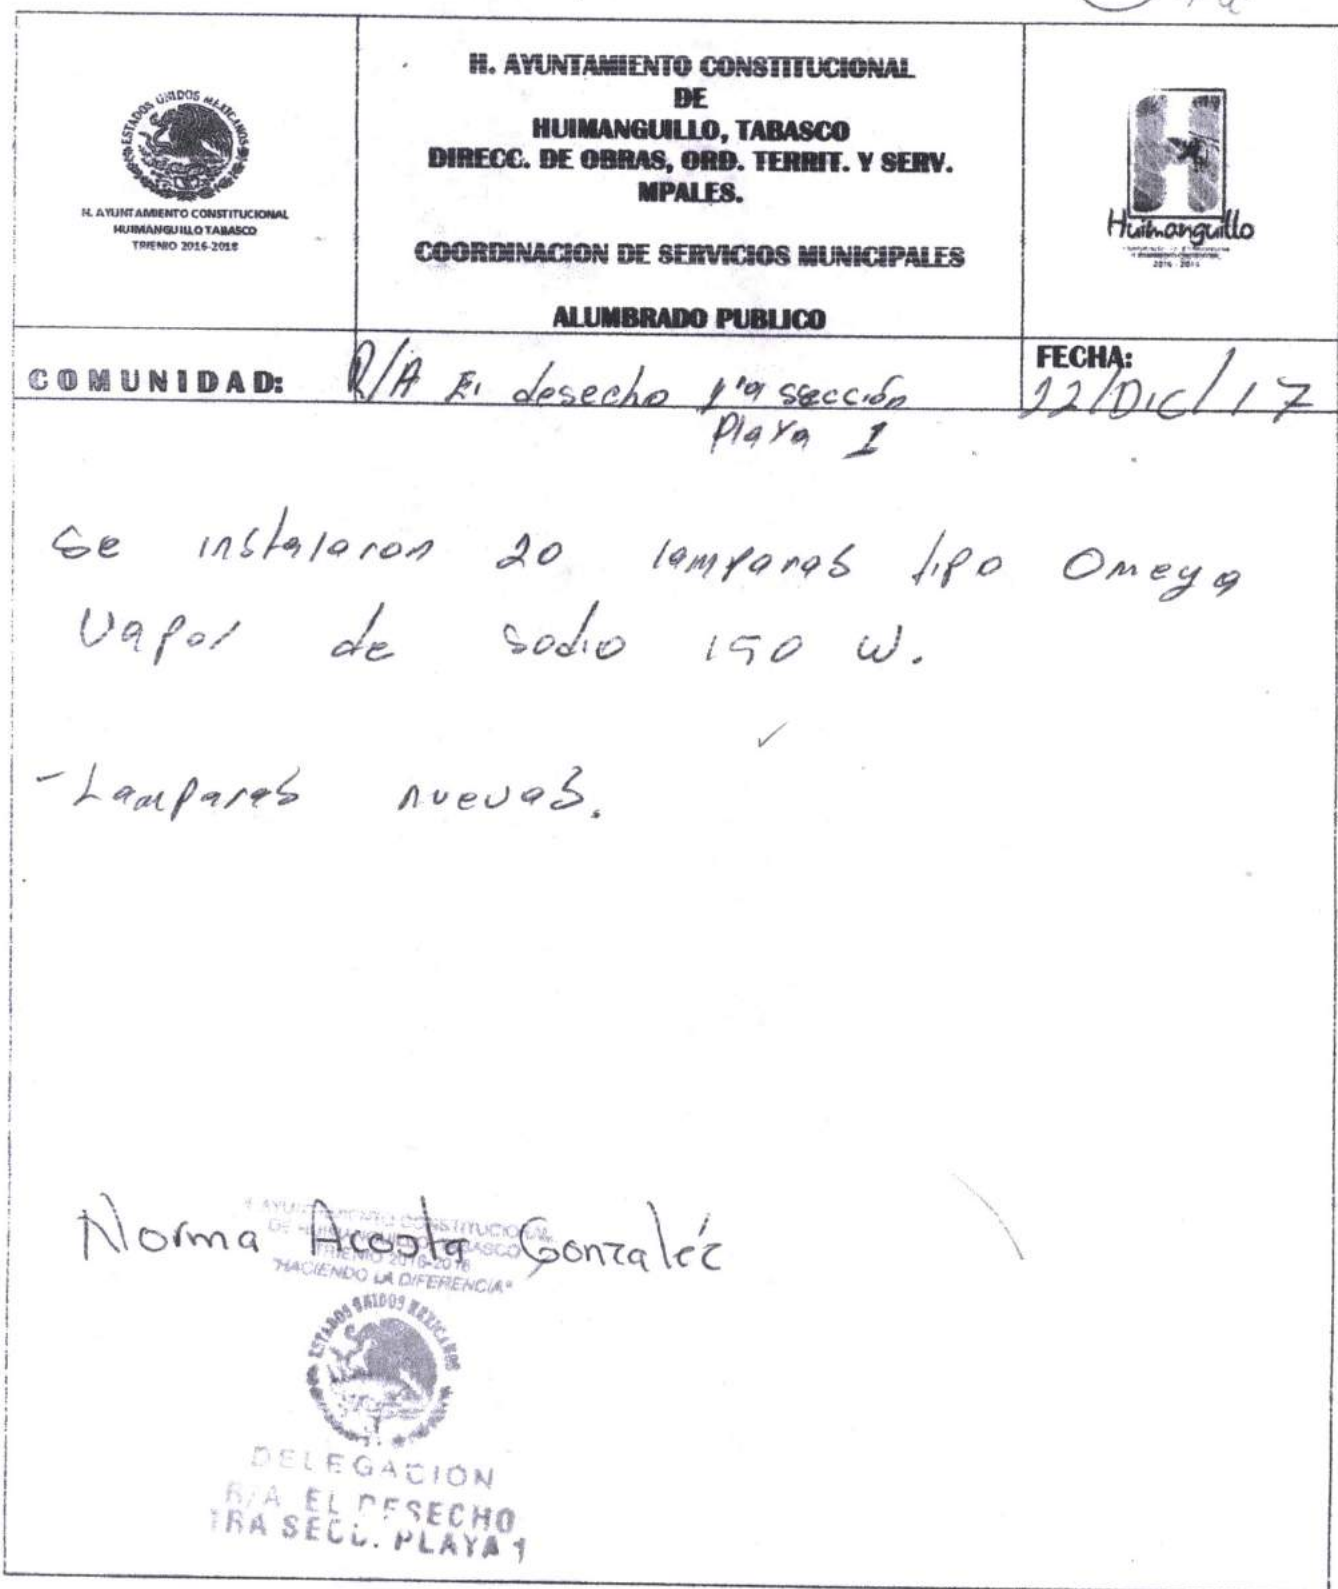 ESTADOS UNIDOS MEXICANOS
H. AYUNTAMIENTO CONSTITUCIONAL
HUIMANGUILLO TABASCO
TRIENIO 2016-2018
H. AYUNTAMIENTO CONSTITUCIONAL
DE
HUIMANGUILLO, TABASCO
DIRECC. DE OBRAS, ORD. TERRIT. Y SERV.
MPALES.
COORDINACION DE SERVICIOS MUNICIPALES
ALUMBRADO PUBLICO
H
Huimanguillo
2016 - 2018
COMUNIDAD: R/A El desecho 1ra sección
Playa 1
FECHA:
22/Dic/17
Se instalaron 20 lamparas tipo Omega
Vapor de sodio 150 W.
- Lamparas nuevas.
Norma Acosta Gonzaléz
H. AYUNTAMIENTO CONSTITUCIONAL
DE HUIMANGUILLO, TABASCO
TRIENIO 2016-2018
"HACIENDO LA DIFERENCIA"
ESTADOS UNIDOS MEXICANOS
DELEGACION
R/A EL DESECHO
1RA SECC. PLAYA 1